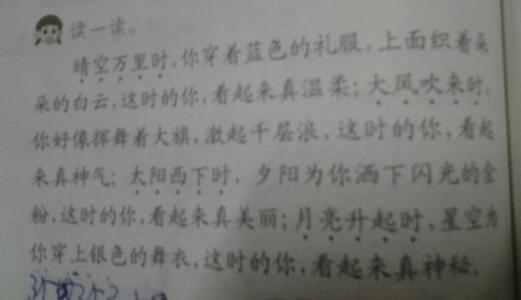 读一读。
晴空万里时,你穿着蓝色的礼服,上面织着朵
朵的白云,这时的你,看起来真温柔;大风吹来时,
你好像挥舞着大旗,激起千层浪,这时的你,看起
来真神气;太阳西下时,夕阳为你洒下闪光的金
粉,这时的你,看起来真美丽;月亮升起时,星空为
你穿上银色的舞衣,这时的你,看起来真神秘。